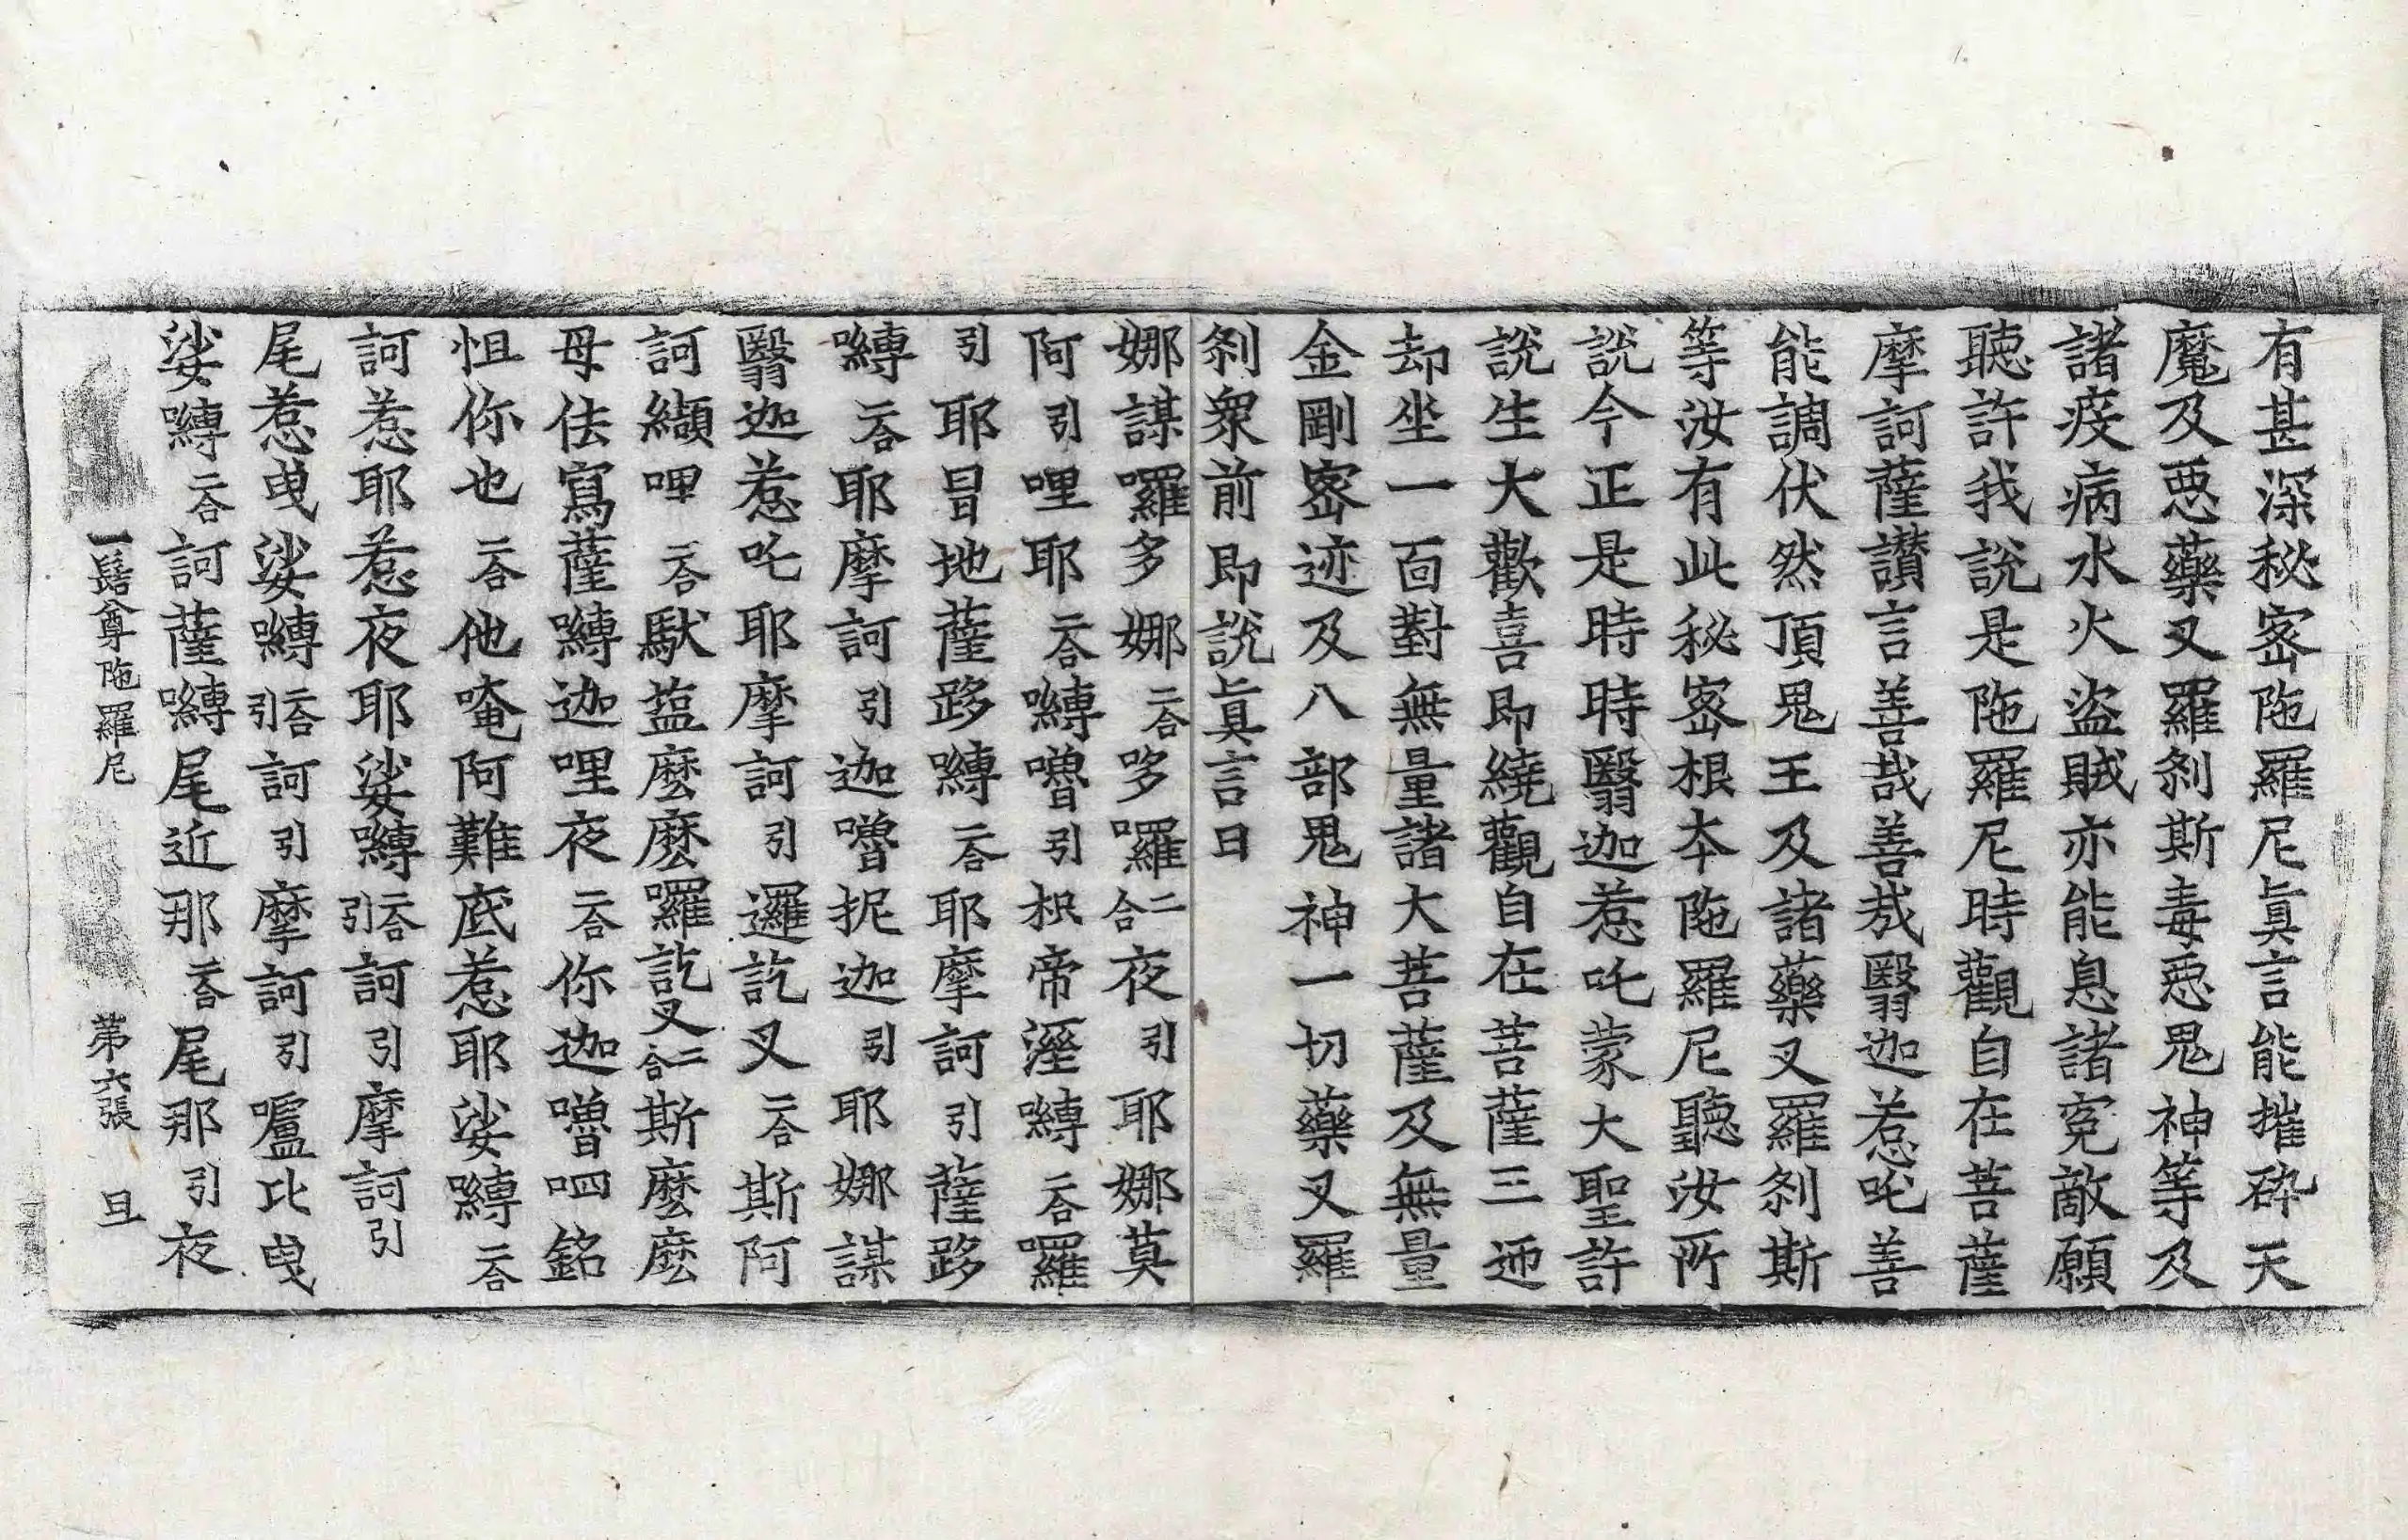 有甚深秘密陁羅尼眞言能摧碎天
魔及惡藥叉羅刹斯毒惡鬼神等及
諸疫病水火盜賊亦能息諸寃敵願
聽許我說是陁羅尼時觀自在菩薩
摩訶薩讃言善哉善哉翳迦惹吒善
能調伏然頂鬼王及諸藥叉羅刹斯
等汝有此秘密根本陁羅尼聽汝所
說今正是時時翳迦惹吒蒙大聖許
說生大歡喜即繞觀自在菩薩三迊
却坐一面對無量諸大菩薩及無量
金剛密迹及八部鬼神一切藥叉羅
刹衆前即說眞言曰
娜謀囉多娜二合哆囉二合夜引耶娜莫
阿引哩耶二合嚩嚕引枳帝溼嚩二合囉
引耶冒地薩跢嚩二合耶摩訶引薩跢
嚩二合耶摩訶引迦嚕抳迦引耶娜謀
翳迦惹吒耶摩訶引邏訖叉二合斯阿
訶纈哩二合馱薀麽麽囉訖叉二合斯麽麽
母佉寫薩嚩迦哩夜二合你迦嚕呬銘
怛你也二合他唵阿難底惹耶娑嚩二合
訶惹耶惹夜耶娑嚩二合引訶引摩訶引
尾惹曳娑嚩二合引訶引摩訶引嚧比曳
娑嚩二合訶薩嚩尾近那二合尾那引夜
一髻尊陁羅尼 第六張 旦